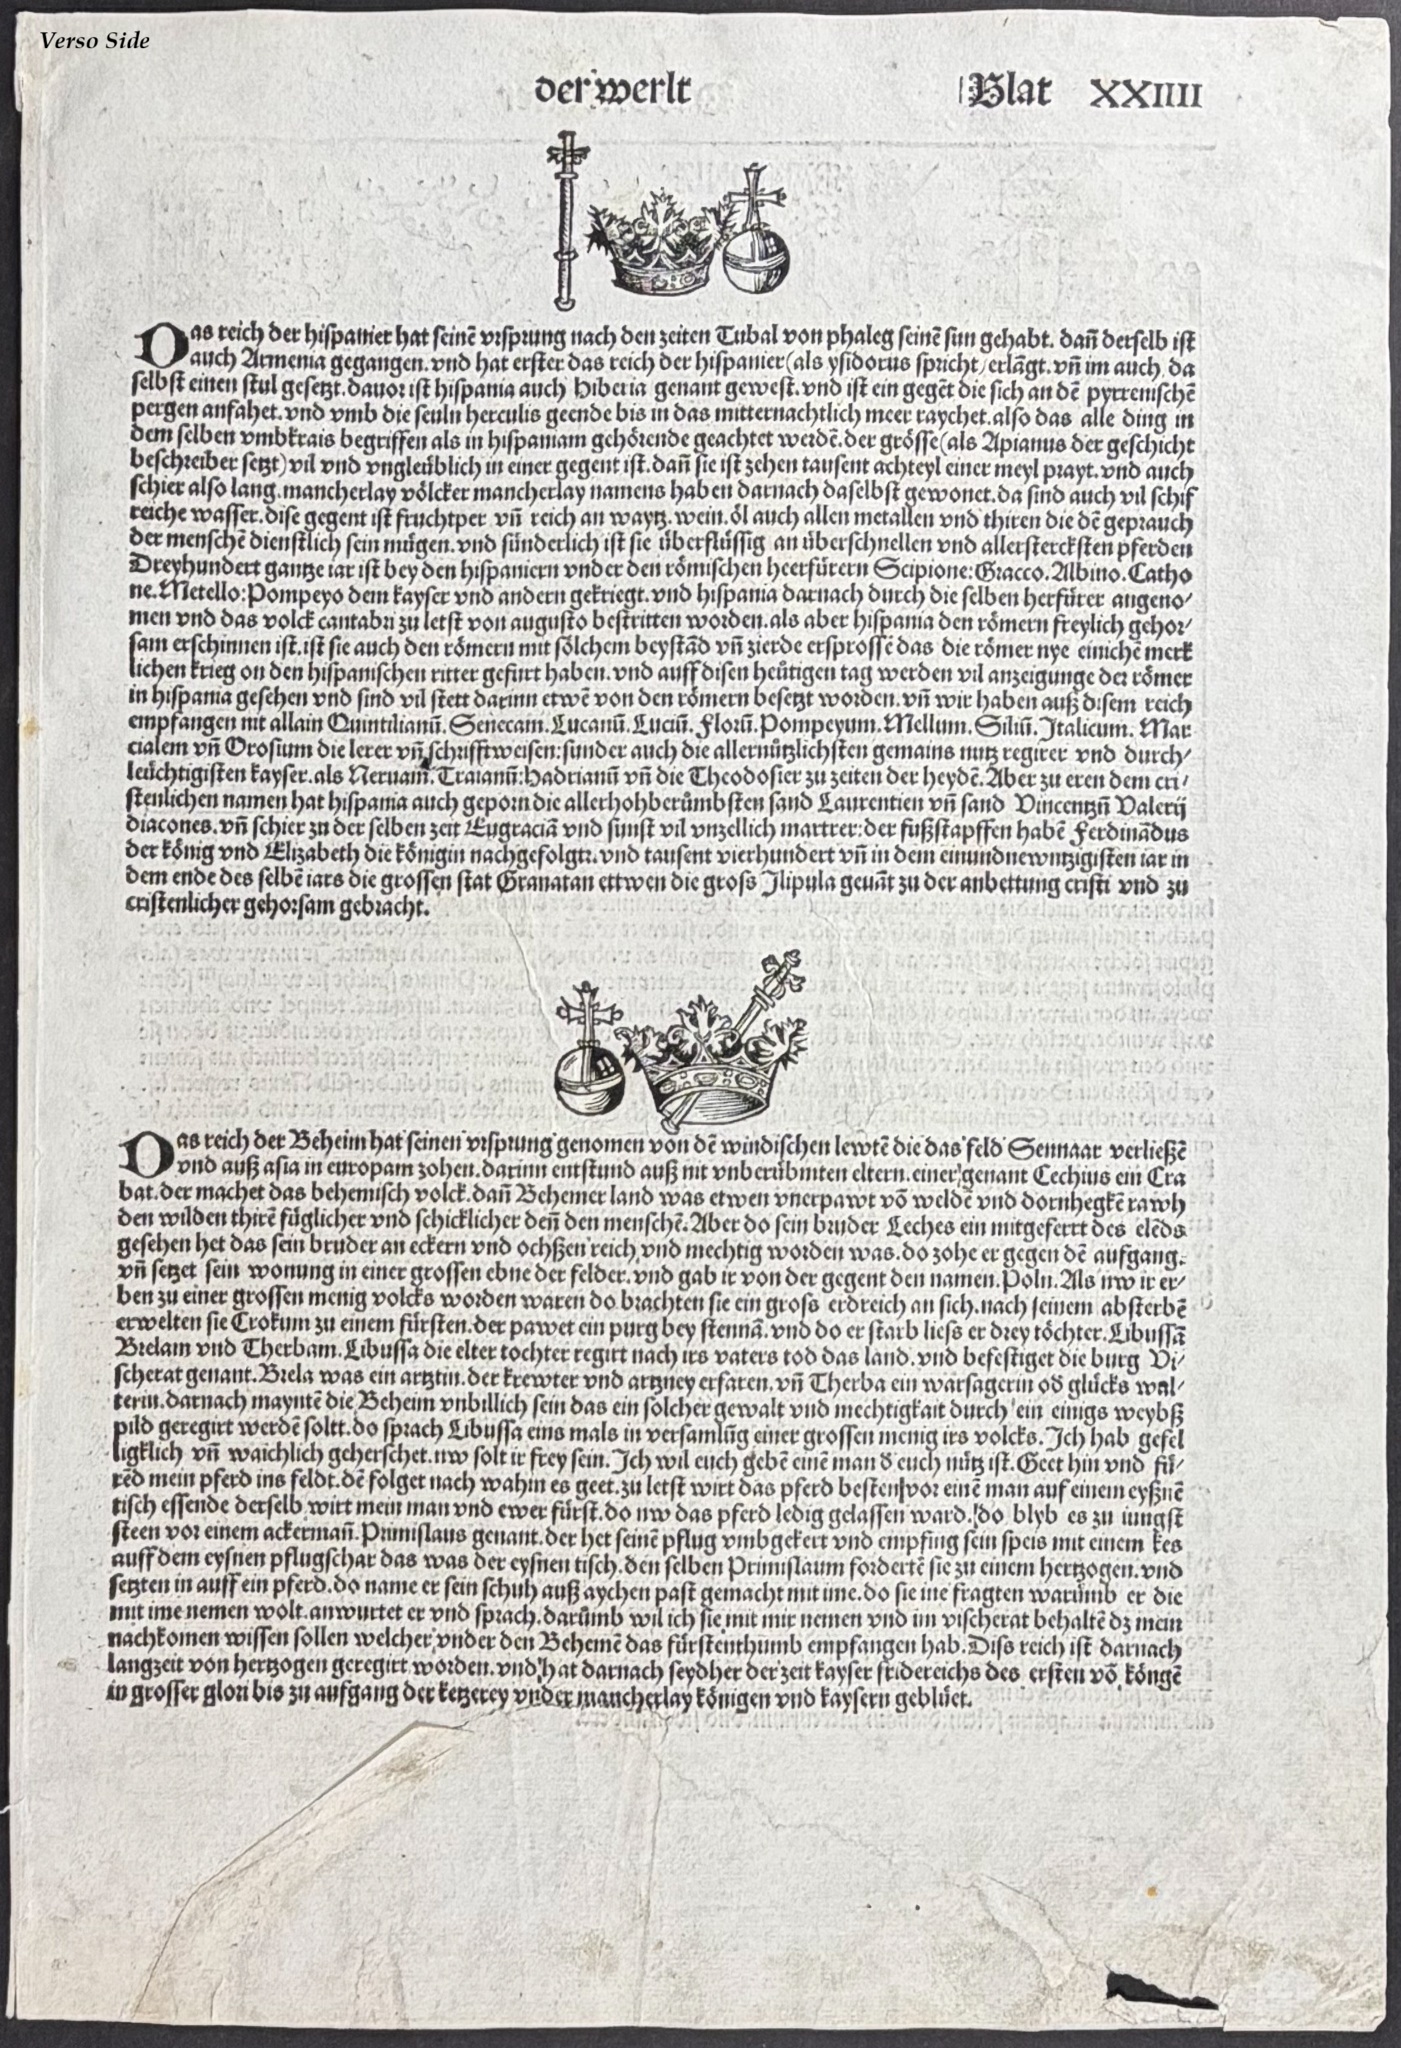 Verso Side
der werlt
Blat XXIIII
Das reich der hispanier hat seinē vrsprung nach den zeiten Tubal von phaleg seinē sun gehabt. dañ derselb ist
auch Armenia gegangen. vnd hat erster das reich der hispanier (als ysidorus spricht) erlāgt. vñ im auch da
selbst einen stul gesetzt. dauor ist hispania auch Hiberia genant gewest. vnd ist ein gegēt die sich an dē pyrrenischē
pergen anfahet. vnd vmb die seuln herculis geende bis in das mitternachtlich meer raychet. also das alle ding in
dem selben vmbkrais begriffen als in hispaniam gehörende geachtet werdē. der grösse (als Apianus der geschicht
beschreiber setzt) vil vnd vngleüblich in einer gegent ist. dañ sie ist zehen tausent achteyl einer meyl prayt. vnd auch
schier also lang. mancherlay völcker mancherlay namens haben darnach daselbst gewonet. da sind auch vil schif
reiche wasser. dise gegent ist fruchtper vñ reich an waytz. wein. öl auch allen metallen vnd thiren die dē geprauch
der menschē dienstlich sein mügen. vnd sünderlich ist sie überflüssig an überschnellen vnd allerstercksten pferden
Dreyhundert gantze iar ist bey den hispaniern vnder den römischen heerfürern Scipione: Gracco. Albino. Catho
ne. Metello: Pompeyo dem kayser vnd andern gekriegt. vnd hispania darnach durch die selben herfürer angeno/
men vnd das volck cantabri zu letst von augusto bestritten worden. als aber hispania den römern freylich gehor/
sam erschinnen ist. ist sie auch den römern mit sölchem beystād vñ zierde ersprossē das die römer nye einichē merk
lichen krieg on den hispanischen ritter gefürt haben. vnd auff disen heütigen tag werden vil anzeigunge der römer
in hispania gesehen vnd sind vil stett darinn etwē von den römern besetzt worden. vñ wir haben auß disem reich
empfangen nit allain Quintilianū. Senecam. Lucanū. Luciū. Florū. Pompeyum. Mellum. Siliū. Italicum. Mar
cialem vñ Orosium die lerer vñ schrifftweisen: sunder auch die allernützlichsten gemains nutz regirer vnd durch/
leüchtigisten kayser. als Neruam. Traianū: Hadrianū vñ die Theodosier zu zeiten der heydē. Aber zu eren dem cri/
stenlichen namen hat hispania auch geporn die allerhohberümbsten sand Laurentien vñ sand Vincentzū Valerij
diacones. vñ schier zu der selben zeit Eugraciā vnd sunst vil vnzellich martrer: der fußstapffen habē Ferdinādus
der könig vnd Elizabeth die königin nachgefolgt. vnd tausent vierhundert vñ in dem einundnewntzigisten iar in
dem ende des selbē iars die grossen stat Granatan ettwen die gross Ilipula genāt zu der anbettung cristi vnd zu
cristenlicher gehorsam gebracht.
Das reich der Beheim hat seinen vrsprung genomen von dē windischen lewtē die das feld Sennaar verließē
vnd auß asia in europam zohen. darinn entstund auß nit vnberümbten eltern. einer genant Cechius ein Cra
bat. der machet das behemisch volck. dañ Behemer land was etwen vnerpawt vō weldē vnd dornhegkē rawh
den wilden thirē füglicher vnd schicklicher deñ den menschē. Aber do sein bruder Leches ein mitgefert des elēds
gesehen het das sein bruder an eckern vnd ochßen reich vnd mechtig worden was. do zohe er gegen dē aufgang.
vñ setzet sein wonung in einer grossen ebne der felder. vnd gab ir von der gegent den namen. Poln. Als nw ir er/
ben zu einer grossen menig volcks worden waren do brachten sie ein gross erdreich an sich. nach seinem absterbē
erwelten sie Crokum zu einem fürsten. der pawet ein purg bey stennā. vnd do er starb liess er drey töchter. Libussā
Brelam vnd Therbam. Libussa die elter tochter regirt nach irs vaters tod das land. vnd befestiget die burg Vi/
scherat genant. Brela was ein artztin. der krewter vnd artzney erfaren. vñ Therba ein warsagerin od glücks wal/
terin. darnach mayntē die Beheim vnbillich sein das ein solcher gewalt vnd mechtigkait durch ein einigs weybß
pild geregirt werdē soltt. do sprach Libussa eins mals in versamlūg einer grossen menig irs volcks. Ich hab gefel
ligklich vñ waichlich geherschet. nw solt ir frey sein. Ich wil euch gebē einē man d̄ euch nütz ist. Geet hin vnd fü/
rēd mein pferd ins feldt. dē folget nach wahin es geet. zu letst wirt das pferd besten vor einē man auf einem eyßnē
tisch essende derselb wirt mein man vnd ewer fürst. do nw das pferd ledig gelassen ward. do blyb es zu iungst
steen vor einem ackermañ. Primislaus genant. der het seinē pflug vmbgekert vnd empfing sein speis mit einem kes
auff dem eysnen pflugschar das was der eysnen tisch. den selben Primislaum fordertē sie zu einem hertzogen. vnd
setzten in auff ein pferd. do name er sein schuh auß aychen past gemacht mit ime. do sie ine fragten warümb er die
mit ime nemen wolt. anwurtet er vnd sprach. darümb wil ich sie mit mir nemen vnd im vischerat behaltē dz mein
nachkomen wissen sollen welcher vnder den Behemē das fürstenthumb empfangen hab. Diss reich ist darnach
langzeit von hertzogen geregirt worden. vnd hat darnach seydher der zeit kayser fridereichs des ersten vō köngē
in grosser glori bis zu aufgang der ketzerey vnder mancherlay königen vnd kaysern geblüet.